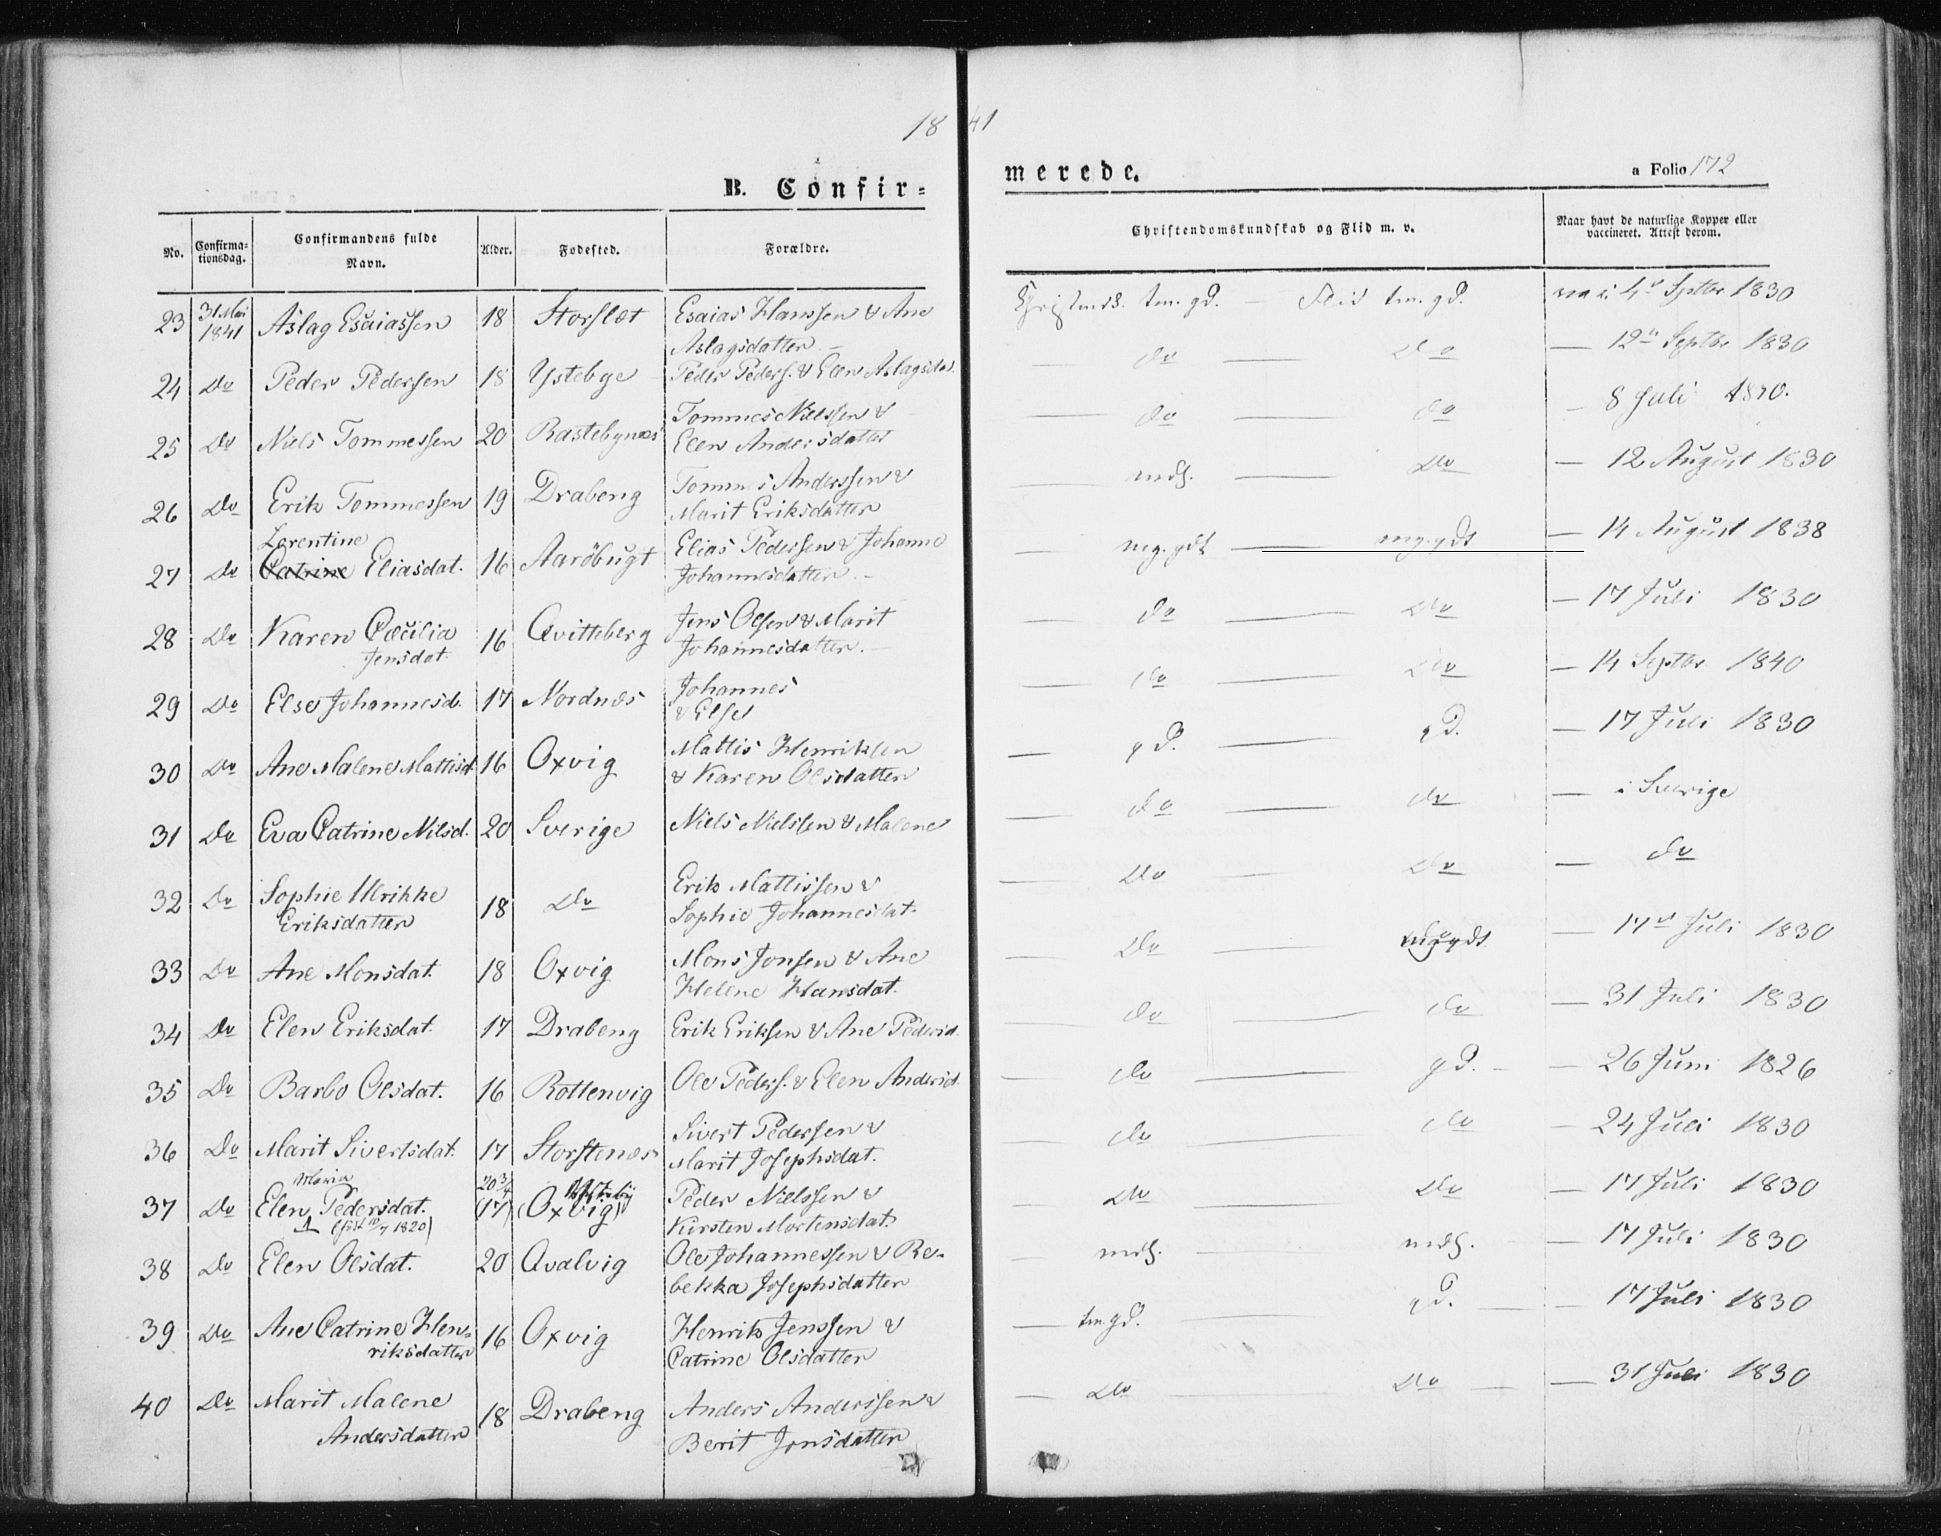 18 41
B. Confir=
merede.
a Folio 172
No.
Confirma-
tionsdag.
Confirmandens fulde
Navn.
Alder.
Fødested.
Forældre.
Christendomskundskab og Flid m. v.
Naar havt de naturlige Kopper eller
vaccineret. Attest derom.
23 31 Mai 1841 Aslag Esaiassen 18 Storslet Esaias Hanssen & Ane
Aslagsdatter
Christends. tm. gd. — Flid tm. gd. vac. i 4de Septbr 1830
24 Do Peder Pedersen 18 Ystebye Peder Peders. & Elen Aslagsdat.
— do — Do — 12te Septbr 1830
25 Do Niels Tommessen 20 Rastebynæs Tommes Nielssen &
Elen Andersdatter
— do — do — 8 Juli 1830.
26 Do Erik Tommessen 19 Drabeng Tommes Anderssen &
Marit Eriksdatter
— mdl. — Do — 12 August 1830
Lorentine
27 Do Catrine Eliasdat. 16 Aaröbugt Elias Pedersen & Johanne
Johannesdatter.
— mg. gdt — mg. gdt — 14 August 1838
28 Do Karen Cæcilia
Jensdat. 16 Qvitteberg Jens Olsen & Marit
Johannesdatter.
— do — Do — 17 Juli 1830
29 Do Else Johannesd. 17 Nordnæs Johannes
& Else
— do — Do — 14 Septbr 1840
30 Do Ane Malene Mattisd. 16 Oxvig Mattis Henriksen
& Karen Olsdatter
— gd. — gd. — 17 Juli 1830
31 Do Eva Catrine Nilsd. 20 Sverige Niels Nielssen & Malene
— do — do — i Sverige
32 Do Sophie Ulrikke
Eriksdatter 18 Do Erik Mattissen &
Sophie Johannesdat.
— Do — Do — do
33 Do Ane Monsdat. 18 Oxvig Mons Jonsen & Ane
Helene Hansdat.
— Do — mg gdt. — 17de Juli 1830
34 Do Elen Eriksdat. 17 Drabeng Erik Eriksen & Ane Pedersd.
— do — do — 31 Juli 1830
35 Do Barbo Olsdat. 16 Rottenvig Ole Peders. & Elen Andersd.
— do — gd. — 26 Juni 1826
36 Do Marit Sivertsdat. 17 Storstenæs Sivert Pedersen &
Marit Josephsdat.
— do — do — 24 Juli 1830
Maria 20 3/4
37 Do Elen Pedersdat. (17) (Oxvig) Peder Nielssen &
1820) Kirsten Mortensdat.
— do — Do — 17 Juli 1830
38 Do Elen Olsdat. 20 Qvalvig Ole Johannessen & Re-
bekka Josephsdatter
— mdl. — mdl. — 17 Juli 1830
39 Do Ane Catrine Hen-
riksdatter 16 Oxvig Henrik Jenssen &
Catrine Olsdatter
— tm. gd. — gd. — 17 Juli 1830
40 Do Marit Malene
Andersdatter 18 Drabeng Anders Anderssen &
Berit Jonsdatter
— Do — Do — 31 Juli 1830